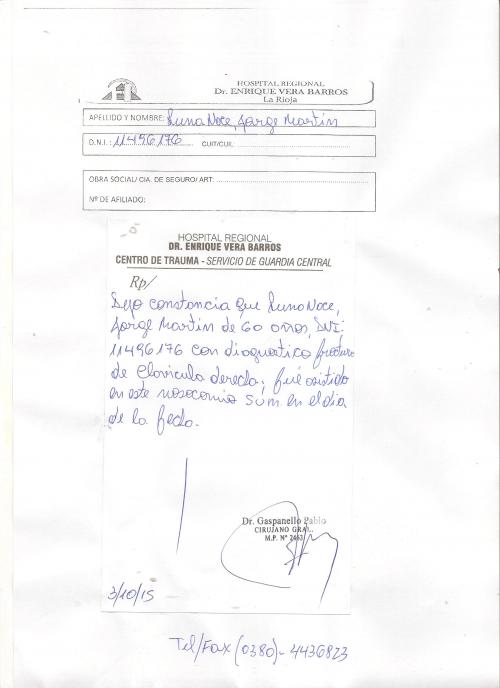 HOSPITAL REGIONAL
Dr. ENRIQUE VERA BARROS
La Rioja
APELLIDO Y NOMBRE: Luna Noce, Jorge Martin
D.N.I.: 11496176 CUIT/CUIL:
OBRA SOCIAL/ CIA. DE SEGURO/ ART:
Nº DE AFILIADO:
HOSPITAL REGIONAL
DR. ENRIQUE VERA BARROS
CENTRO DE TRAUMA - SERVICIO DE GUARDIA CENTRAL
Rp/
Dejo constancia que Luna Noce,
Jorge Martin de 60 años, DNI:
11496176 con diagnostico fractura
de Clavicula derecha; fué asistido
en este nosocomio en el dia
de la fecha.
Dr. Gaspanello Pablo
CIRUJANO GRAL.
M.P. Nº 2463
3/10/15
Tel/Fax (0380)- 4436823